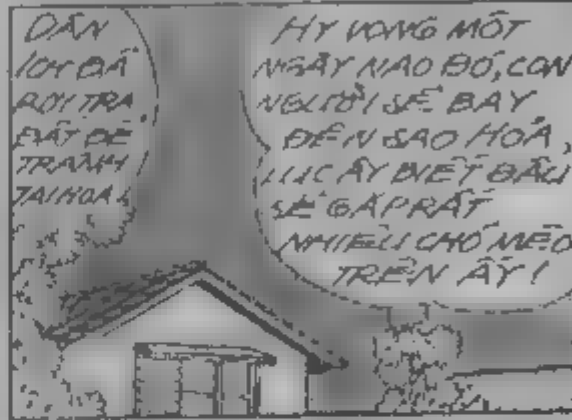 DÂN
ĐÃ
RỜI TRÁI
ĐẤT ĐỂ
TRÁNH
TAI HOẠ
HY VỌNG MỘT
NGÀY NÀO ĐÓ, CON
NGƯỜI SẼ BAY
ĐẾN SAO HOẢ,
LÚC ẤY BIẾT ĐÂU
SẼ GẶP RẤT
NHIỀU CHÓ MÈO
TRÊN ẤY!